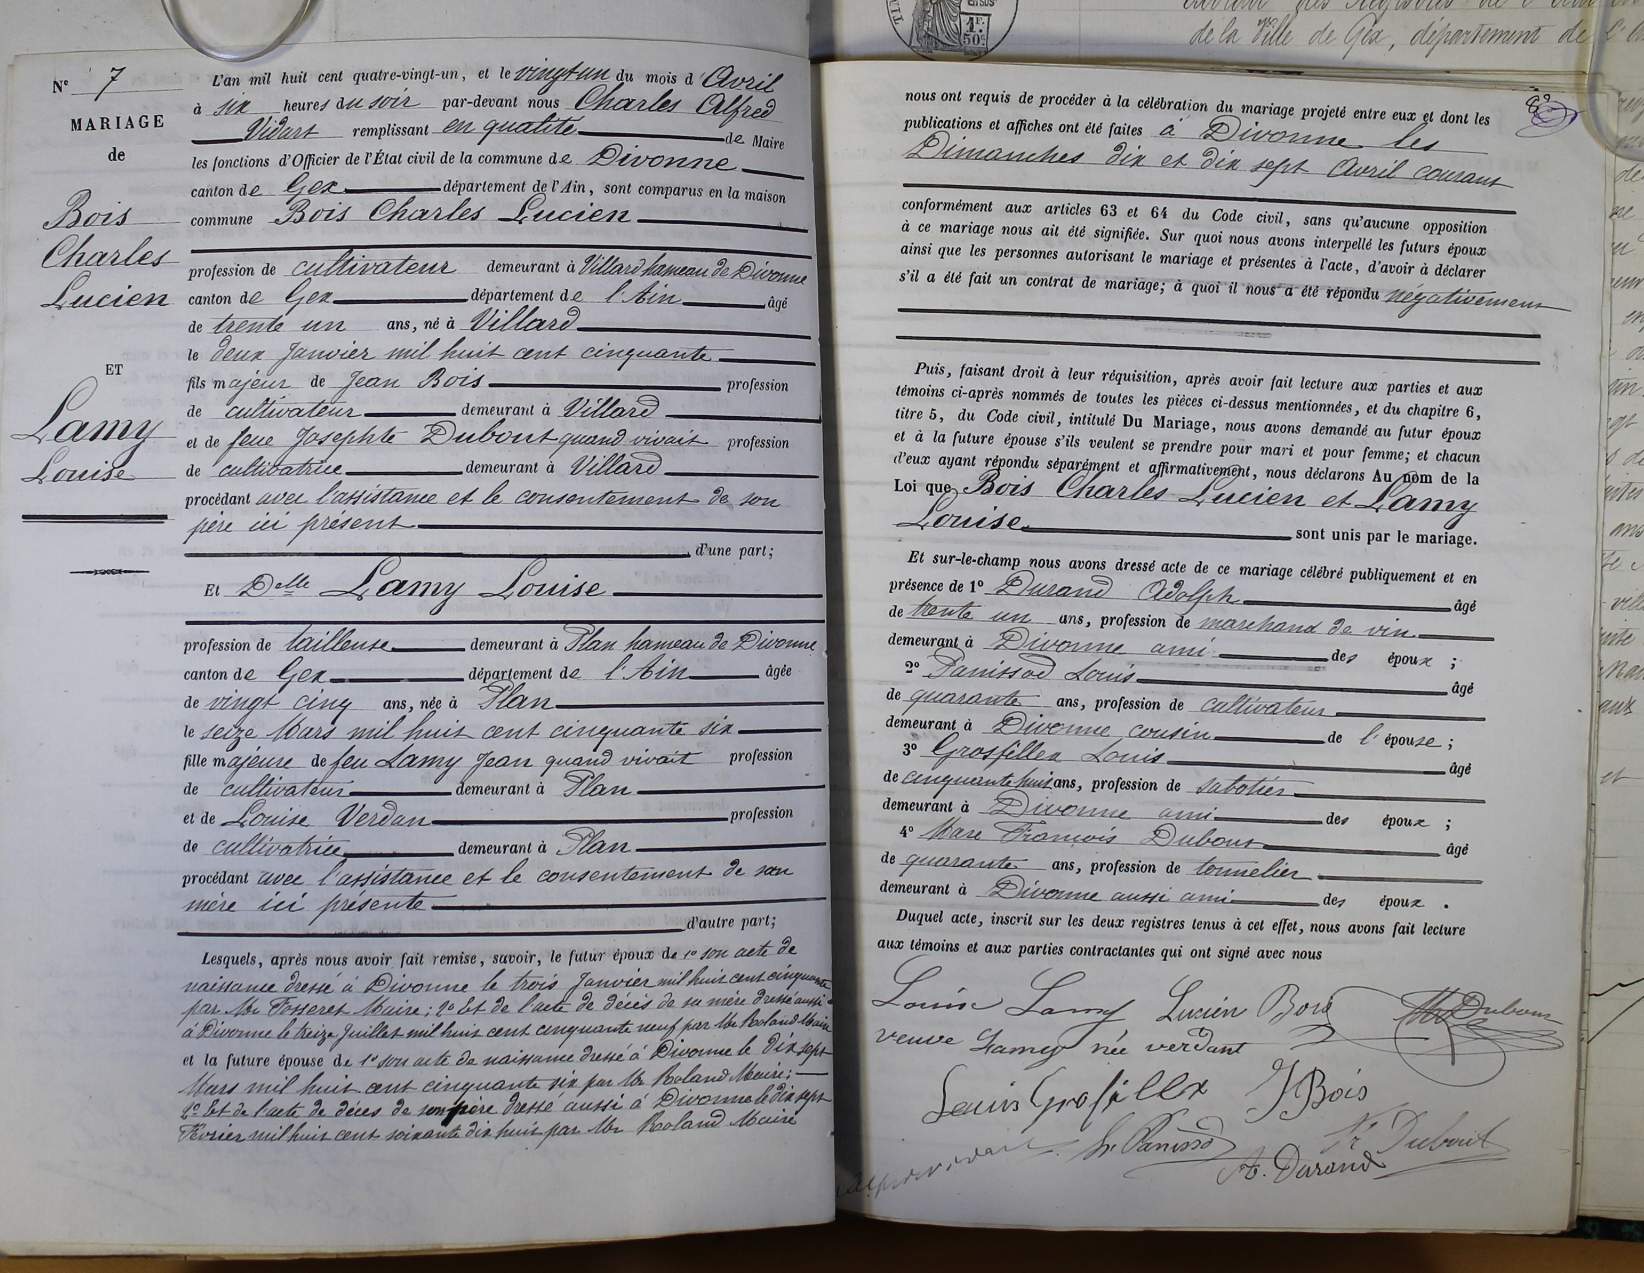 N° 7
MARIAGE
de
Bois
Charles
Lucien
ET
Lamy
Louise
L'an mil huit cent quatre-vingt-un, et le vingt un du mois d'Avril
à six heures du soir par-devant nous Charles Alfred
Vidart remplissant en qualité de Maire
les fonctions d'Officier de l'État civil de la commune de Divonne
canton de Gex département de l'Ain, sont comparus en la maison
commune Bois Charles Lucien
profession de cultivateur demeurant à Villard hameau de Divonne
canton de Gex département de l'Ain âgé
de trente un ans, né à Villard
le deux Janvier mil huit cent cinquante
fils majeur de Jean Bois profession
de cultivateur demeurant à Villard
et de feue Josephte Dubout quand vivait profession
de cultivatrice demeurant à Villard
procédant avec l'assistance et le consentement de son
père ici présent
d'une part;
Et Delle Lamy Louise
profession de tailleuse demeurant à Plan hameau de Divonne
canton de Gex département de l'Ain âgée
de vingt cinq ans, née à Plan
le seize Mars mil huit cent cinquante six
fille majeure de feu Lamy Jean quand vivait profession
de cultivateur demeurant à Plan
et de Louise Verdan profession
de cultivatrice demeurant à Plan
procédant avec l'assistance et le consentement de son
mère ici présente
d'autre part;
Lesquels, après nous avoir fait remise, savoir, le futur époux de 1° son acte de
naissance dressé à Divonne le trois Janvier mil huit cent cinquante
par Mr Fosseret Maire; 2° Et de l'acte de décès de sa mère dressé aussi
à Divonne le treize Juillet mil huit cent cinquante neuf par Mr Roland Maire
et la future épouse de 1° son acte de naissance dressé à Divonne le dix sept
Mars mil huit cent cinquante six par Mr Roland Maire;
2° Et de l'acte de décès de son père dressé aussi à Divonne le dix sept
Février mil huit cent soixante dix huit par Mr Roland Maire
1F.
50c
de la Ville de Gex, département de l'
nous ont requis de procéder à la célébration du mariage projeté entre eux et dont les
publications et affiches ont été faites à Divonne les
Dimanches dix et dix sept Avril courant
conformément aux articles 63 et 64 du Code civil, sans qu'aucune opposition
à ce mariage nous ait été signifiée. Sur quoi nous avons interpellé les futurs époux
ainsi que les personnes autorisant le mariage et présentes à l'acte, d'avoir à déclarer
s'il a été fait un contrat de mariage; à quoi il nous a été répondu négativement
Puis, faisant droit à leur réquisition, après avoir fait lecture aux parties et aux
témoins ci-après nommés de toutes les pièces ci-dessus mentionnées, et du chapitre 6,
titre 5, du Code civil, intitulé Du Mariage, nous avons demandé au futur époux
et à la future épouse s'ils veulent se prendre pour mari et pour femme; et chacun
d'eux ayant répondu séparément et affirmativement, nous déclarons Au nom de la
Loi que Bois Charles Lucien et Lamy
Louise sont unis par le mariage.
Et sur-le-champ nous avons dressé acte de ce mariage célébré publiquement et en
présence de 1° Durand Adolph âgé
de trente un ans, profession de marchand de vin
demeurant à Divonne ami des époux;
2° Panissod Louis âgé
de quarante ans, profession de cultivateur
demeurant à Divonne cousin de l'épouse;
3° Grosfillex Louis âgé
de cinquante huit ans, profession de sabotier
demeurant à Divonne ami des époux;
4° Marc François Dubout âgé
de quarante ans, profession de tonnelier
demeurant à Divonne aussi ami des époux.
Duquel acte, inscrit sur les deux registres tenus à cet effet, nous avons fait lecture
aux témoins et aux parties contractantes qui ont signé avec nous
Louise Lamy Lucien Bois Dubout
veuve Lamy née verdant
Louis Grosfillex J Bois
L. Panissod Dubout
A. Durand